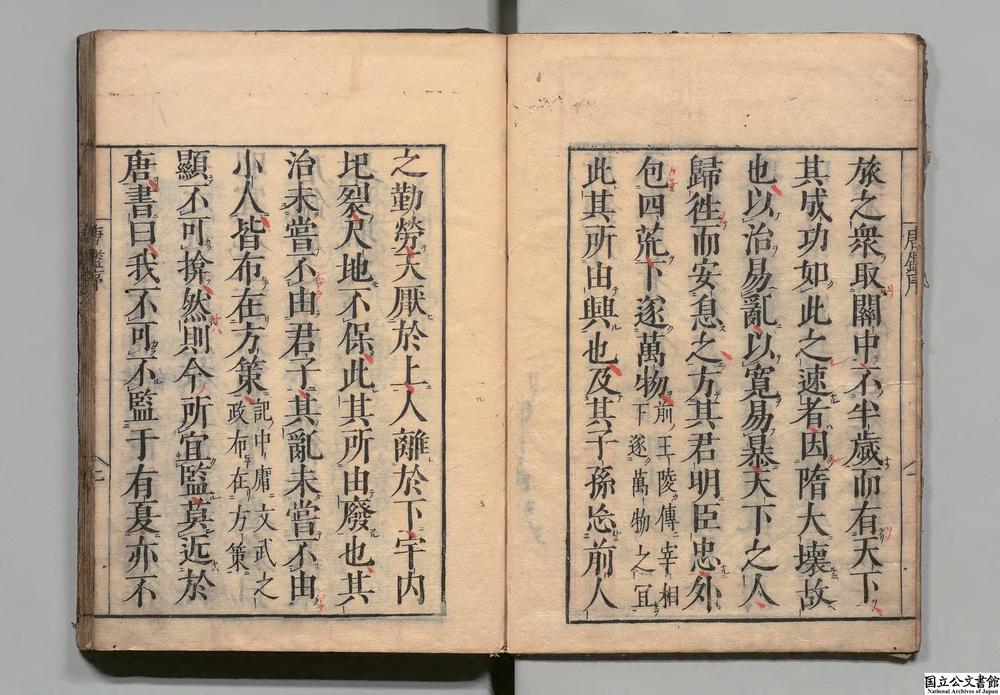 旅之衆取關中不半歲而有天下
其成功如此之速者因隋大壞故
也以治易亂以寬易暴天下之人
歸徃而安息之方其君明臣忠外
包四荒下遂萬物前王陵傳宰相下遂萬物之宜
此其所由興也及其子孫忘前人
之勤勞天厭於上人離於下宇内
圯裂尺地不保此其所由廢也其
治未嘗不由君子其亂未嘗不由
小人皆布在方策記中庸文武之政布在方策
顯不可揜然則今所宜監莫近於
唐書曰我不可不監于有夏亦不
唐鑑序
二
国立公文書館
National Archives of Japan